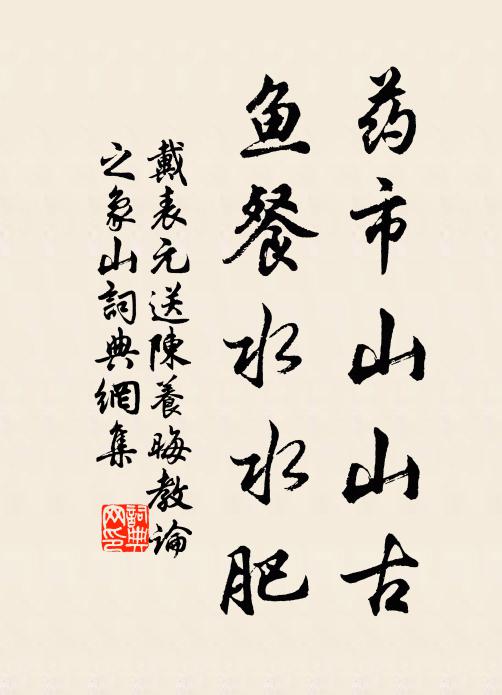 药市山山古
鱼餐水水肥
戴表元送陳養晦教諭
之象山詞典網集
詞典
网印